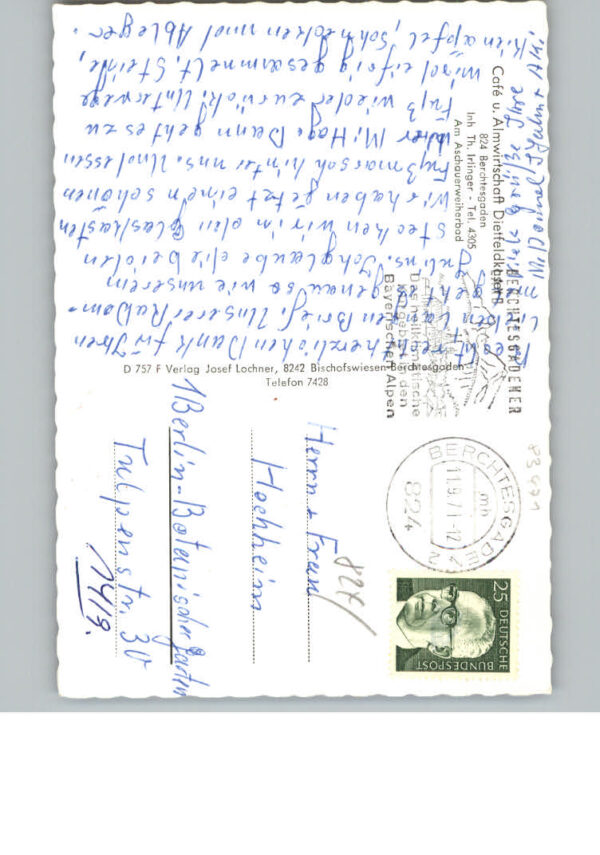 Café u. Almwirtschaft Dietfeldkaser
824 Berchtesgaden
Inh. Th. Irlinger - Tel. 4305
Am Aschauerweiherbad
Recht herzlichen Dank für Ihren
lieben langen Brief. Unserer
geht es genau so wie unserem
Julius. Ich glaube die beiden
stecken wir in den Glaskasten
Wir haben jetzt einen schönen
Fußmarsch hinter uns. Undessen
Dann geht es zu
Fuß wieder zurück. Unterwegs
wird eifrig gesammelt. Steine,
Kienäpfel, Schnecken und Ableger.
Viele Grüße Ihre
D 757 F Verlag Josef Lochner, 8242 Bischofswiesen-Berchtesgaden
Telefon 7428
BERCHTESGADENER
Das heilklimatische
Kurgebiet in den
Bayerischen Alpen
BERCHTESGADEN 2
11.9.71-12
mh
824
25 DEUTSCHE
BUNDESPOST
83471
82x/
Herrn + Frau
Hochheim
1 Berlin-Botanischer Garten
Tulpenstr. 30
14/9.